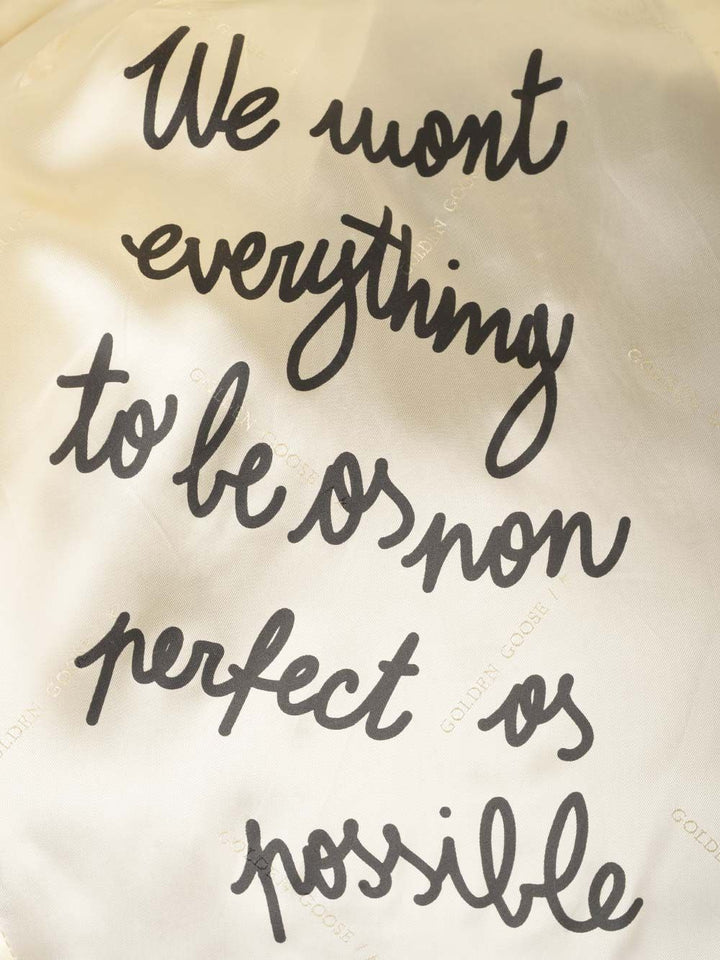 We want
everything
to be as non
perfect as
possible
GOLDEN GOOSE
GOLDEN GOOSE
GOLDEN GOOSE /
GOLDEN GOOSE
GOLDEN GOOSE /